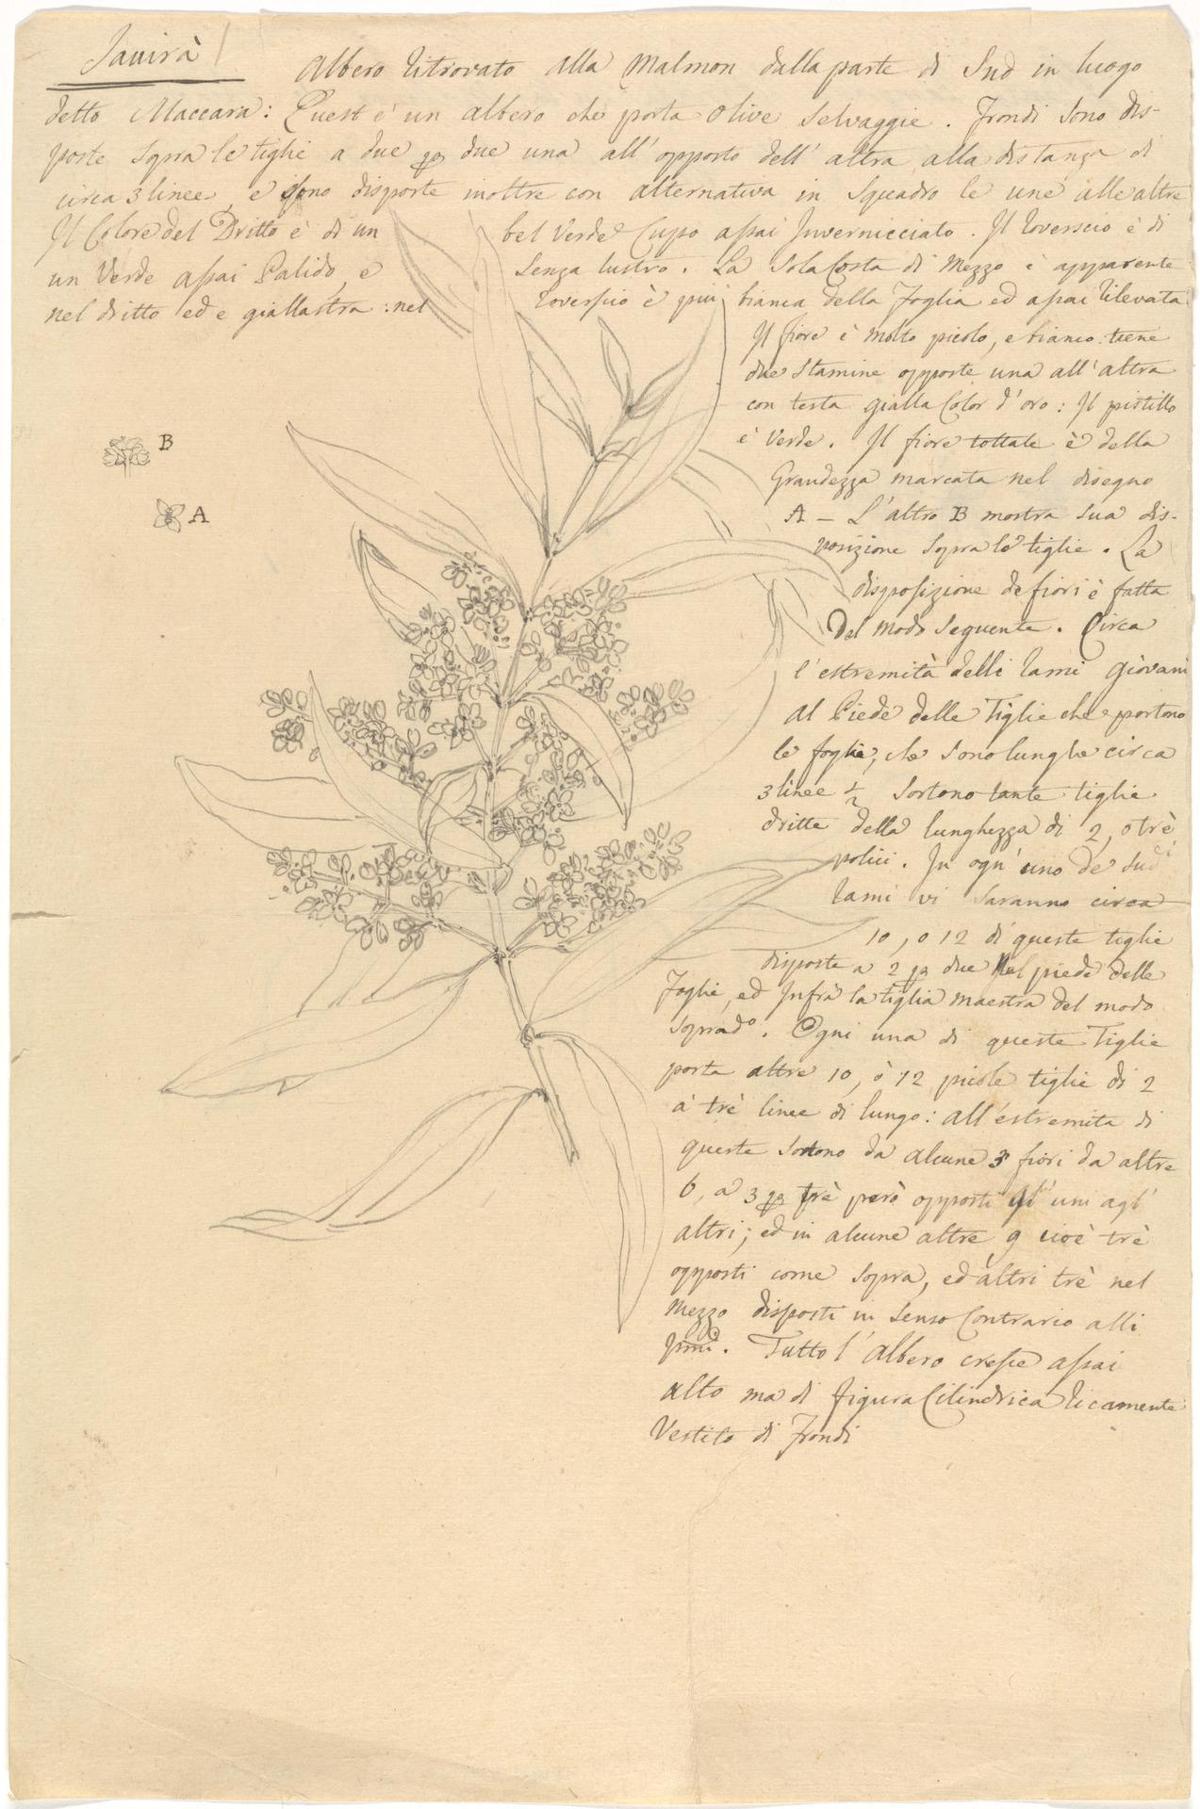 Albero ritrovato alla Malmon dalla parte di Sud in luogo
detto Maccara: Quest è un albero che porta olive selvaggie. Frondi sono dis-
poste sopra le tiglie a due p due una all'opposto dell'altra alla distanza di
circa 3 linee, e sono disposte inoltre con alternativa in squadro le une alle altre
Il Colore del Dritto è di un bel Verde Cupo assai Invernicciato. Il roverscio è di
un Verde assai Palido, e senza lustro. La sola Costa di Mezzo è apparente
nel dritto ed e giallastra: nel roverscio è più bianca della foglia ed assai rilevata
Il fiore è molto picolo, e bianco: tiene
due stamine opposte una all'altra
con testa gialla Color d'oro: Il pistillo
è Verde. Il fiore tottale è della
Grandezza marcata nel disegno
A – L'altro B mostra sua dis-
posizione sopra le tiglie. La
disposizione de fiori è fatta
Del modo seguente. Circa
l'estremità delli rami giovani
al Piede delle Tiglie che portono
le foglie, che sono lunghe circa
3 linee ½ sortono tante tiglie
dritte della lunghezza di 2, o trè
polici. In ogn'uno de sud.i
rami vi saranno circa
10, o 12 di queste tiglie
disposte a 2 p due Nel piede delle
foglie, ed Infra la tiglia maestra del modo
soprad.o. Ogni una di queste Tiglie
porta altre 10, ò 12 picole tiglie di 2
à trè linee di lungo: all'estremita di
queste sortono da alcune 3 fiori da altre
6, a 3 p trè però opposti gl'uni agl'
altri; ed in alcune altre 9 cioè trè
opposti come sopra, ed altri trè nel
mezzo disposti in senso Contrario alli
pmi. Tutto l'albero cresce assai
alto ma di figura Cilindrica ricamente
Vestito di Frondi
B
A